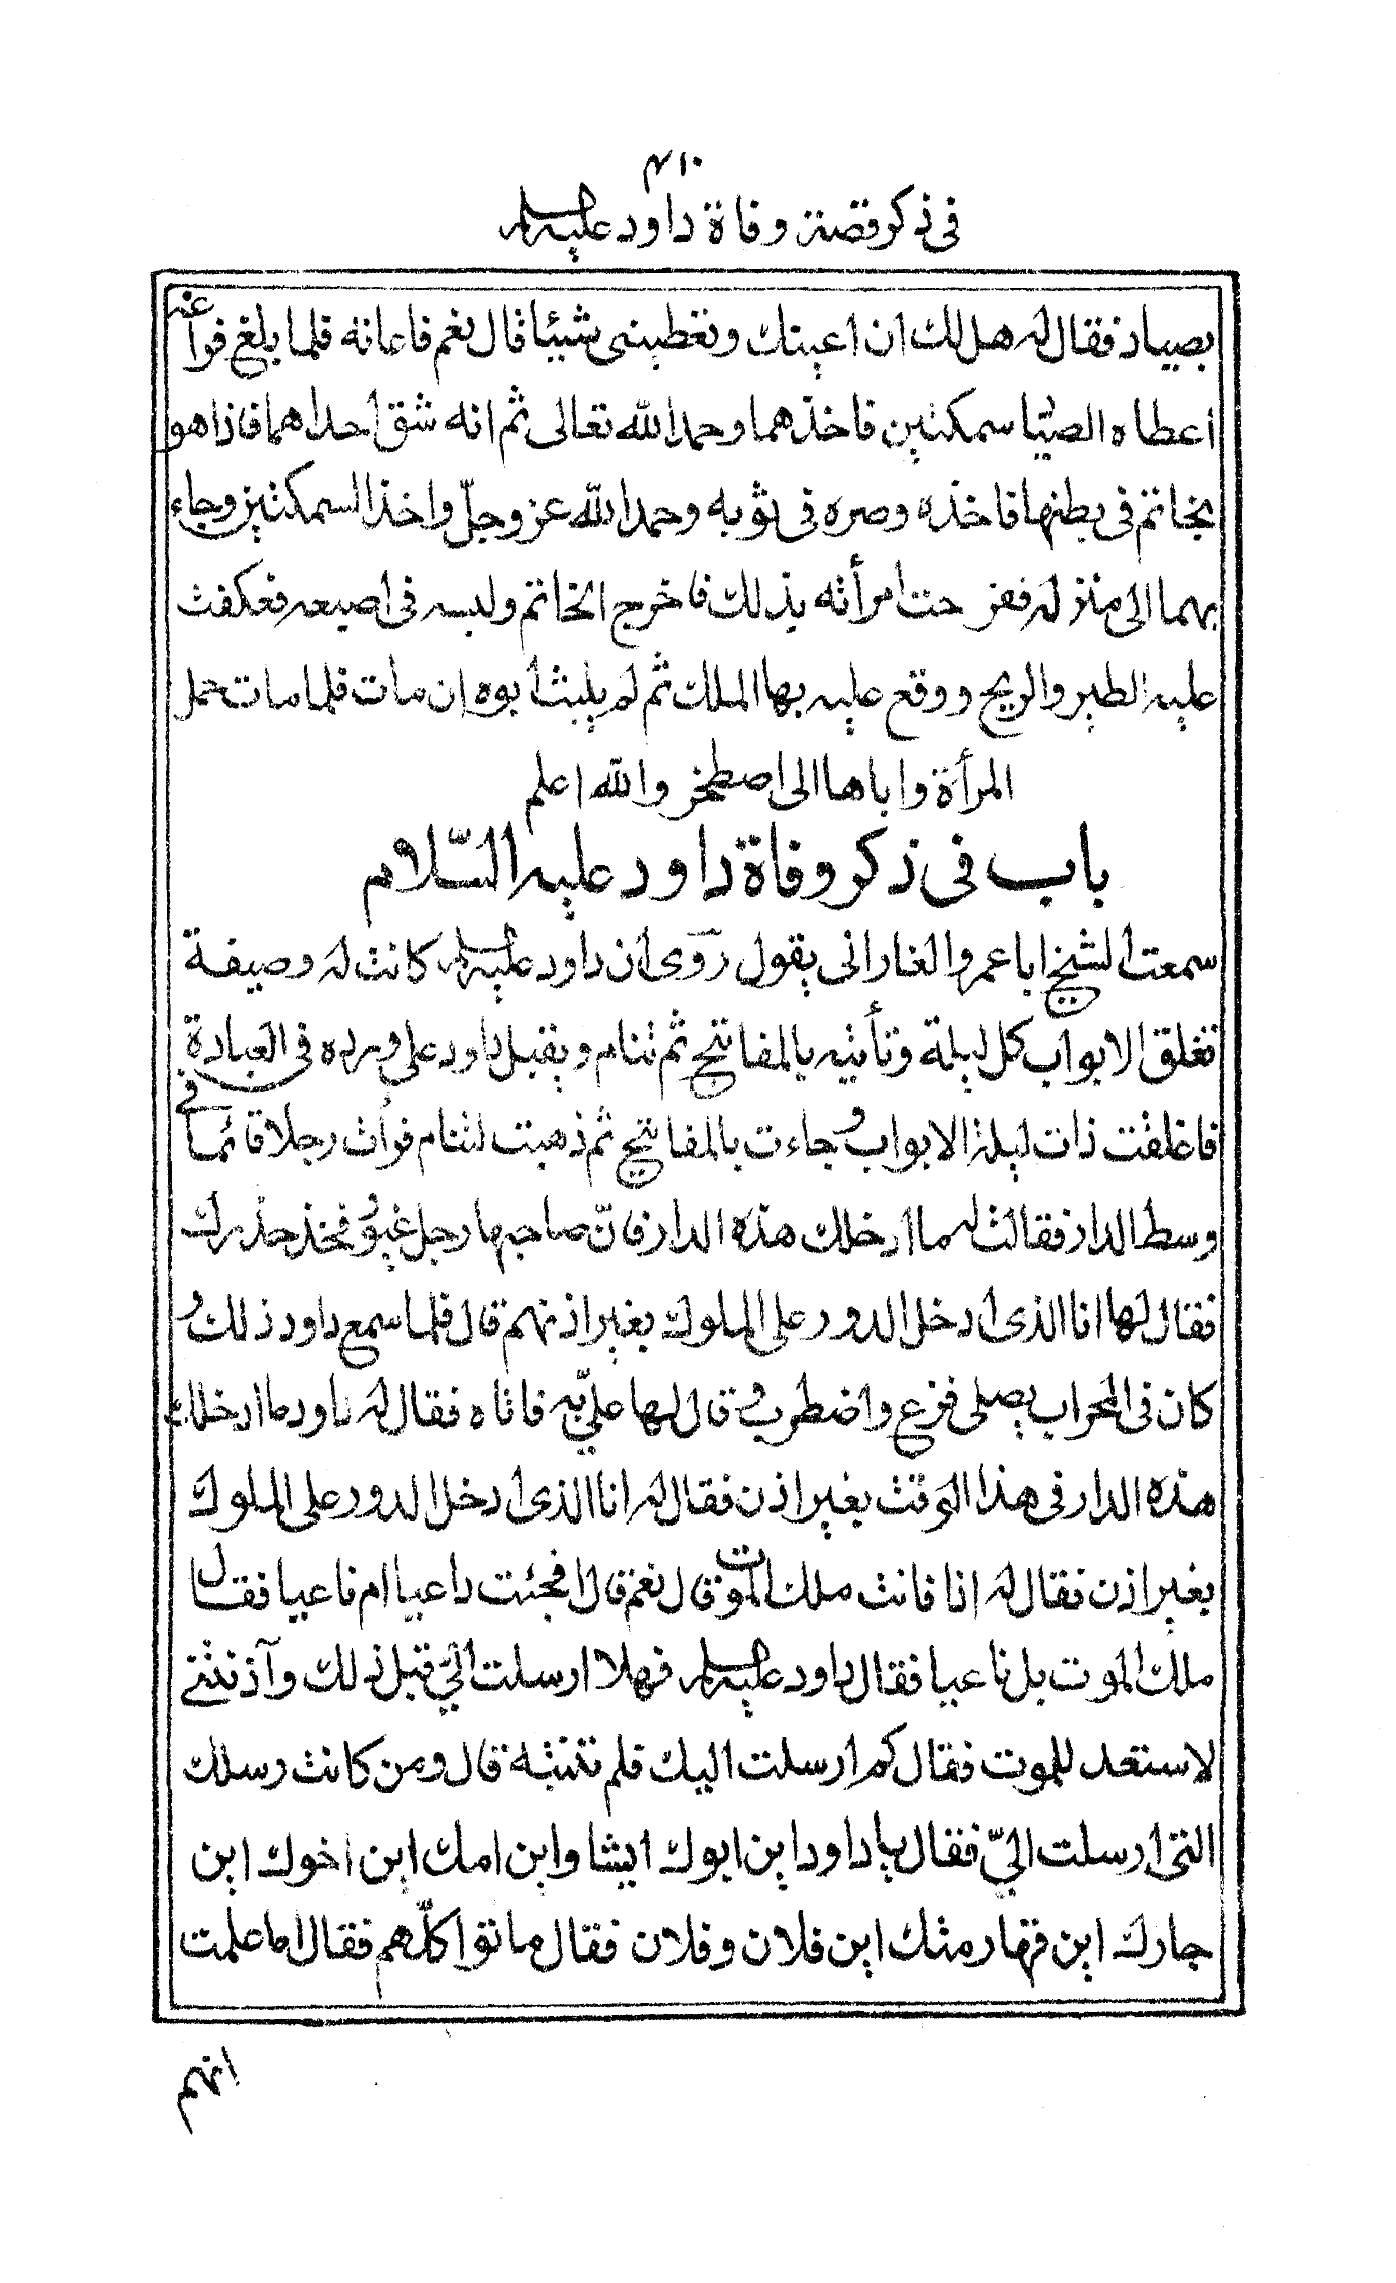 ٣١٠
فى ذكر قصة وفاة داود عليه السلم
بصياد فقال له هل لك ان اعينك وتعطينى شيئا قال نعم فاعانه فلما بلغ فراغه
اعطاه الصياد سمكتين فاخذهما وحمد الله تعالى ثم انه شق احداهما فاذا هو
بخاتم فى بطنها فاخذه وصره فى ثوبه وحمد الله عز وجلّ واخذ السمكتين وجاء
بهما الى منزله ففرحت امرأته بذلك فاخرج الخاتم ولبسه فى اصبعه فعكفت
عليه الطير والريح ووقع عليه بها الملك ثم لم يلبث أبوه ان مات فلما مات حمل
المرأة واباها الى اصطخر والله اعلم
باب فى ذكر وفاة داود عليه السّلام
سمعت الشيخ ابا عمرو الفارانى يقول روى ان داود عليه السلم كانت له وصيفة
تغلق الابواب كل ليلة وتأتيه بالمفاتيح ثم تنام ويقبل داود على ورده فى العبادة
فاغلقت ذات ليلة الابواب وجاءت بالمفاتيح ثم ذهبت لتنام فرأت رجلا قائما فى
وسط الدار فقالت له ما ادخلك هذه الدار فانّ صاحبها رجل غيور فخذ حذرك
فقال لها انا الذى ادخل الدور على الملوك بغير اذنهم قال فلما سمع داود ذلك و
كان فى المحراب يصلى فزع واضطرب و قال لها علىّ به فاتاه فقال له داود ما ادخلك
هذه الدار فى هذا الوقت بغير اذن فقال له انا الذى ادخل الدور على الملوك
بغير اذن فقال له انا فانت ملك الموت قال نعم قال افجئت داعيا ام ناعيا فقال
ملك الموت بل ناعيا فقال داود عليه السلم فهلا ارسلت الىّ قبل ذلك وآذنتنى
لاستعد للموت فقال كم ارسلت اليك فلم تتنبه قال ومن كانت رسلك
التى ارسلت الىّ فقال يا داود اين ابوك ايشا واين امك اين اخوك اين
جارك اين قهارمتك اين فلان وفلان فقال ماتوا كلّهم فقال اما علمت
انهم